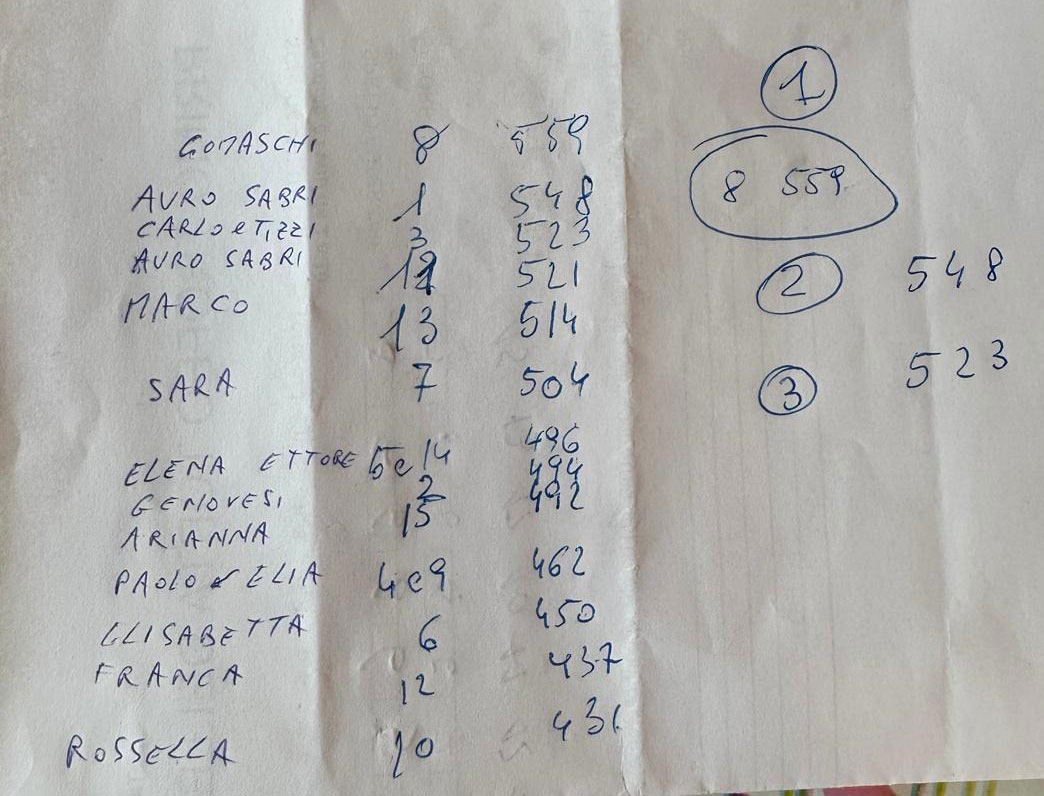 GOMASCHI 8 559
AURO SABRI 1 548
CARLO e TIZZI 3 523
AURO SABRI 521
MARCO 13 514
SARA 7 504
ELENA ETTORE 5 e 14 496
GENOVESI 2 494
ARIANNA 15 492
PAOLO e ELIA 4 e 9 462
ELISABETTA 6 450
FRANCA 12 437
ROSSELLA 10 431
1
8 559
2 548
3 523